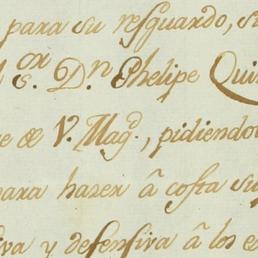 para su resguardo, su
ors. Dn Phelipe Qui
e de V. Magd., pidiendo
para hazer â costa su
iva y defensiva â los e